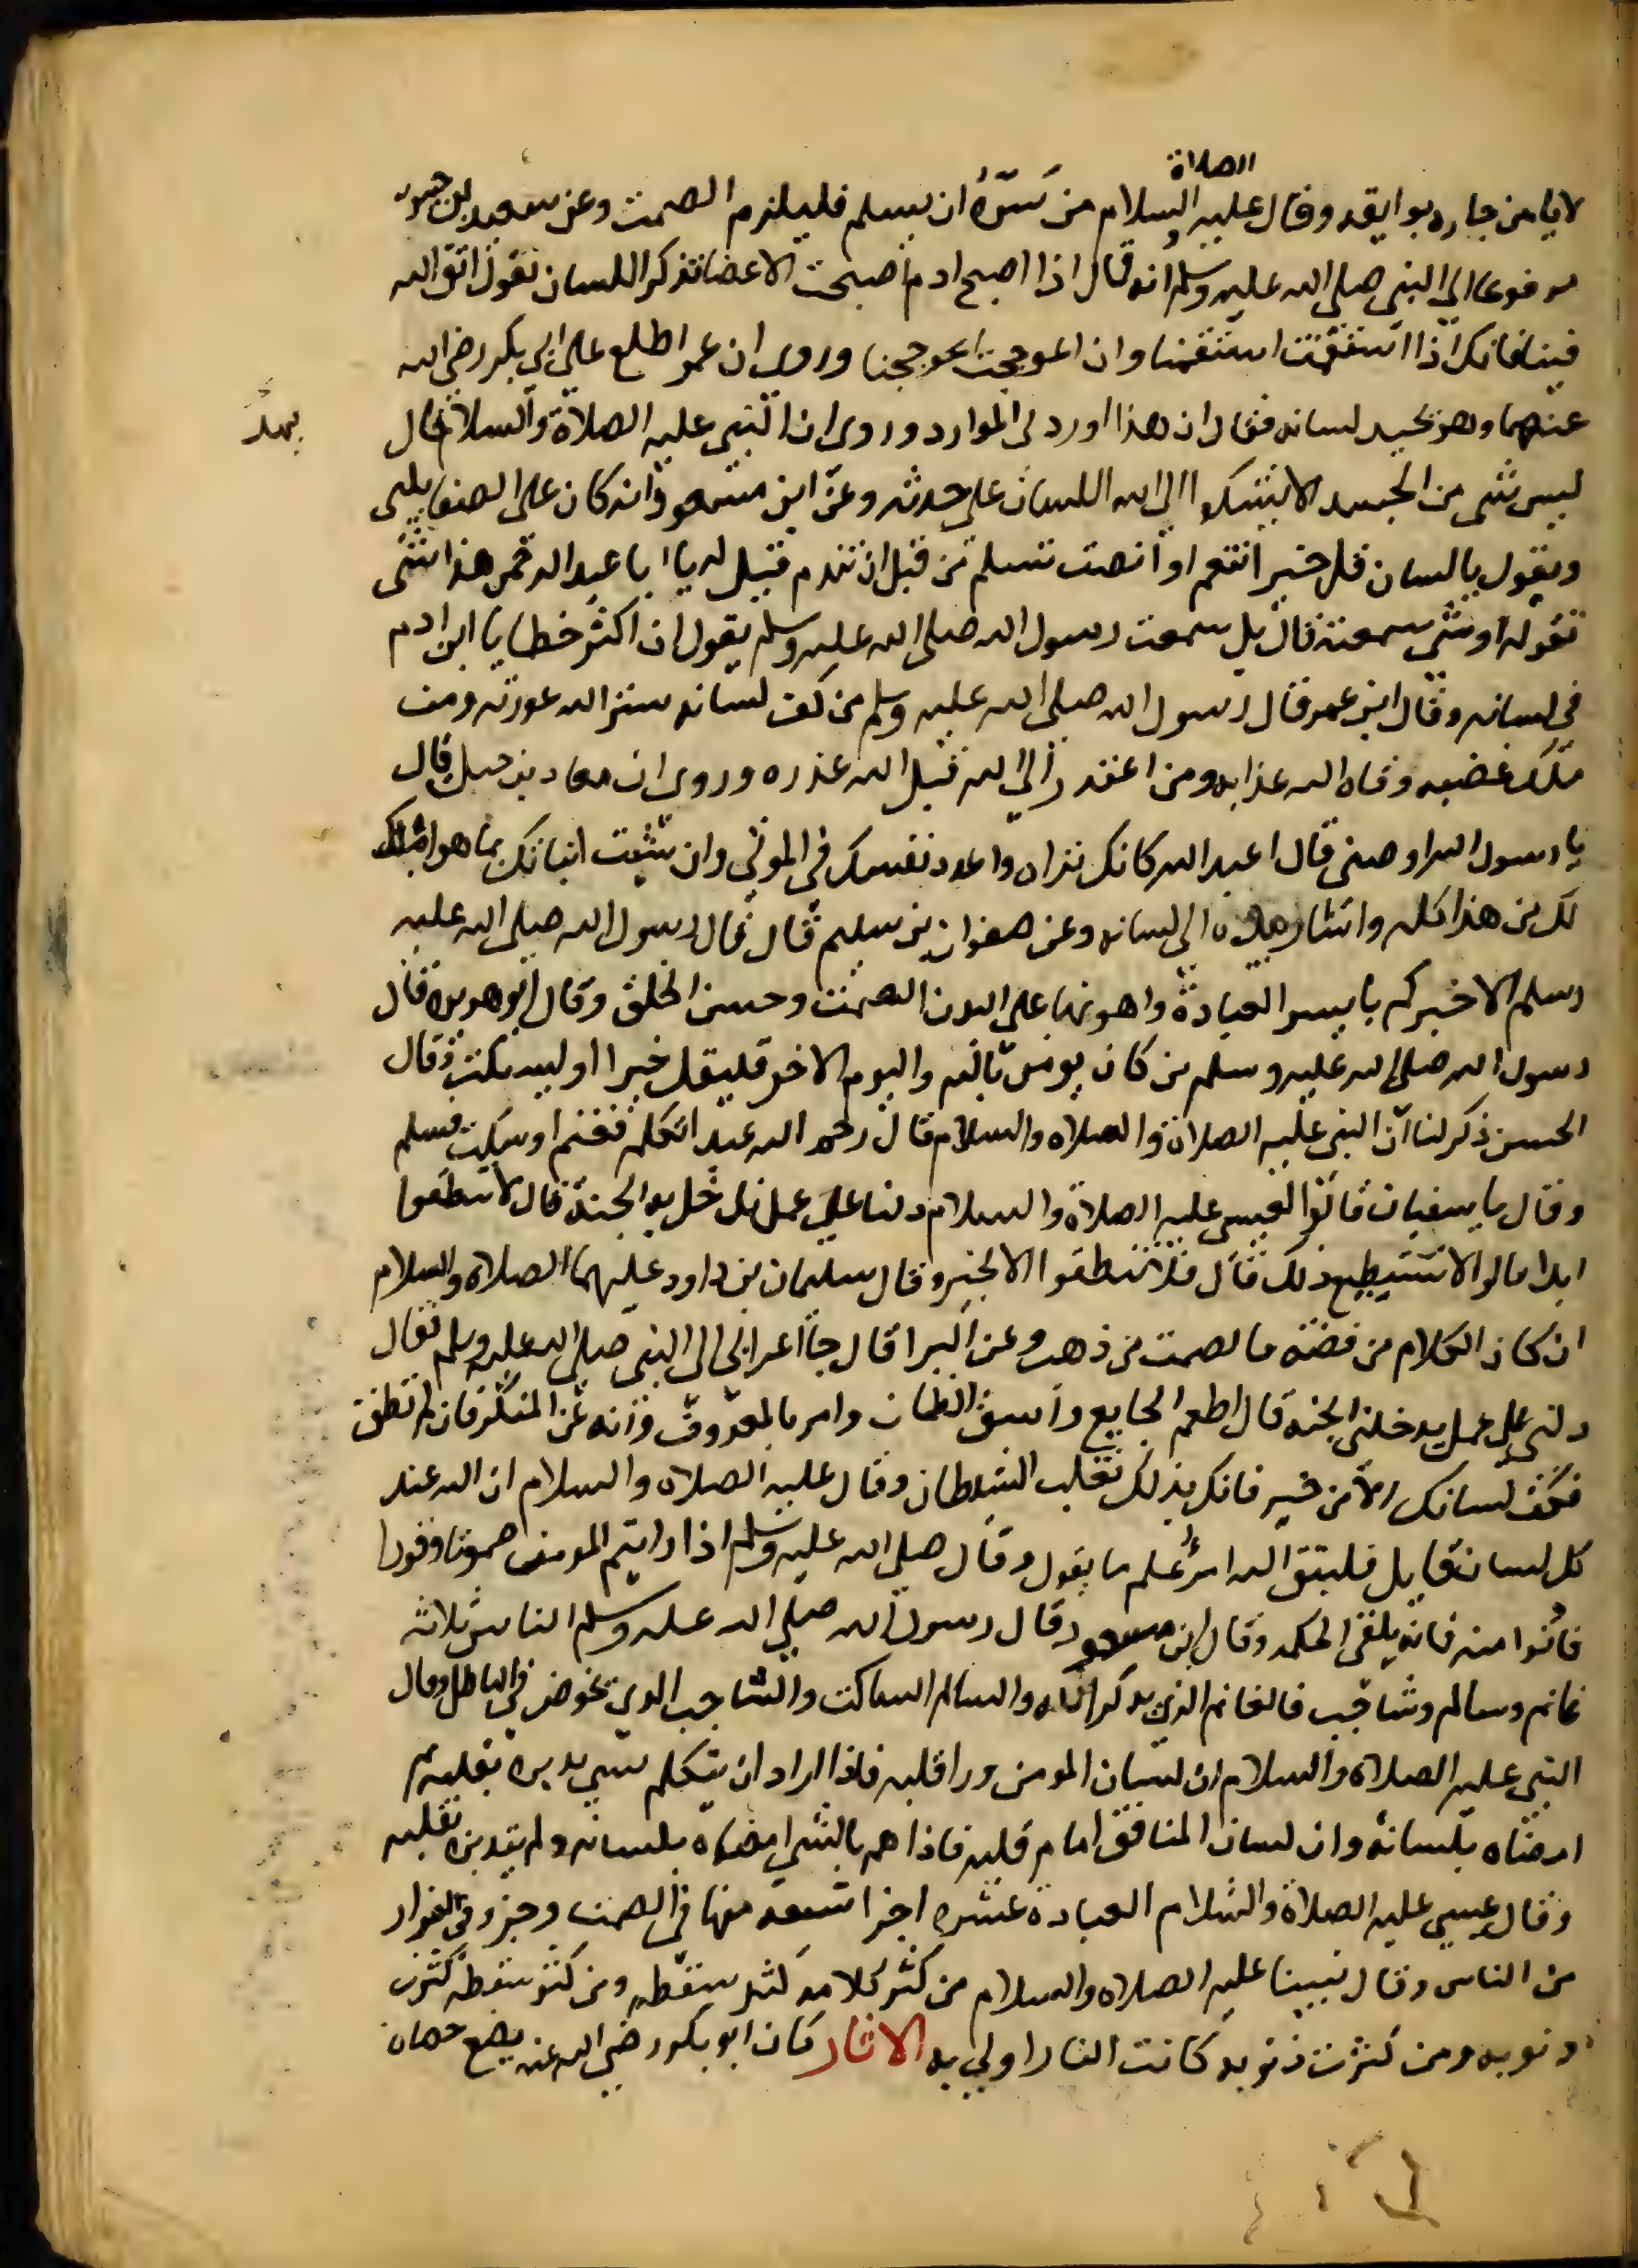 الصلاة
لا يامن جاره بوايقه وقال عليه السلام من سَرّهُ ان يسلم فليلزم الصمت وعن سعيد بن جبير
مرفوعا الي النبي صلي الله عليه وسلم انه قال اذا اصبح ادم اصبحت الاعضا تذكر اللسان تقول اتق الله
فينا فانك اذا استقمت استقمنا وان اعوججت اعوججنا وروي ان عمر اطلع علي ابي بكر رضي الله
عنهما وهو يجبد لسانه فقال ان هذا اوردني الموارد وروي ان النبي عليه الصلاة والسلام قال
يمد
ليس شي من الجسد الا يشكوا الي الله اللسان علي حدته وعن ابن مسعود انه كان علي الصفا يلبي
ويقول يا لسان قل خير اتنعم او انصت تسلم من قبل ان تندم فقيل له يا ابا عبد الرحمن هذا شي
تقوله او شي سمعته قال بل سمعت رسول الله صلي الله عليه وسلم يقول ان اكثر خطايا ابن ادم
في لسانه وقال ابن عمر قال رسول الله صلي الله عليه وسلم من كف لسانه ستر الله عورته ومن
ملك غضبه وقاه الله عذابه ومن اعتذر الي الله قبل الله عذره وروي ان معاد بن جبل قال
يا رسول الله اوصني قال اعبد الله كانك تراه واعدد نفسك في الموتي وان شيت انباتك بما هو املك
لك من هذا كله واشار بيده الي لسانه وعن صفوان بن سليم قال قال رسول الله صلي الله عليه
وسلم الا اخبركم بايسر العبادة واهونها علي البدن الصمت وحسن الخلق وقال ابو هريرة قال
رسول الله صلي الله عليه وسلم من كان يومن بالله واليوم الاخر فليقل خيرا او ليسكت وقال
الحسن ذكر لنا ان النبي عليه الصلاة والصلاه والسلام قال رحم الله عبد اتكلم فغنم او سكت فسلم
وقال يا سفيان قالوا لعيسي عليه الصلاة والسلام دلنا علي عمل ندخل به الجنة قال لا تنطقوا
ابدا قالوا لا نستيطيع ذلك قال فلا تنطقوا الا بخير وقال سليمان بن داود عليهما الصلاة والسلام
ان كان الكلام من فضة فالصمت من ذهب وعن البرا قال جا اعرابي الي النبي صلي الله عليه وسلم فقال
دلني علي عمل يدخلني الجنة قال اطعم الجايع واسق الظمان وامر بالمعروف وانه عن المنكر فان لم تطق
فكف لسانك الا من خير فانك بذلك تغلب الشيطان وقال عليه الصلاه والسلام ان الله عند
كل لسان قايل فليتق الله امرؤ علم ما يقول وقال صلي الله عليه وسلم اذا رايتم المومن صموتا وقورا
فادنوا منه فانه يلقي الحكمه وقال ابن مسعود قال رسول الله صلي الله عليه وسلم الناس ثلاثه
غانم وسالم وشاجب فالغانم الذي يذكر الله والسالم الساكت والشاجب الدي يخوض في الباطل وقال
النبي عليه الصلاة والسلام ان لسان المومن ورا قلبه فاذا اراد ان يتكلم بشي يدبره بقلبه ثم
امضاه بلسانه وان لسان المنافق امام قلبه فاذا هم بالشي امضاه بلسانه ولم يتدبره بقلبه
وقال عيسي عليه الصلاة والسلام العبادة عشره اجزا تسعه منها في الصمت وجزو في الفرار
من الناس وقال نبينا عليه الصلاه والسلام من كثر كلامه كثر سقطه ومن كثر سقطه كثرت
ذنوبه ومن كثرت ذنوبه كانت النار اولي به الاثار كان ابو بكر رضي الله عنه يضع حصاة